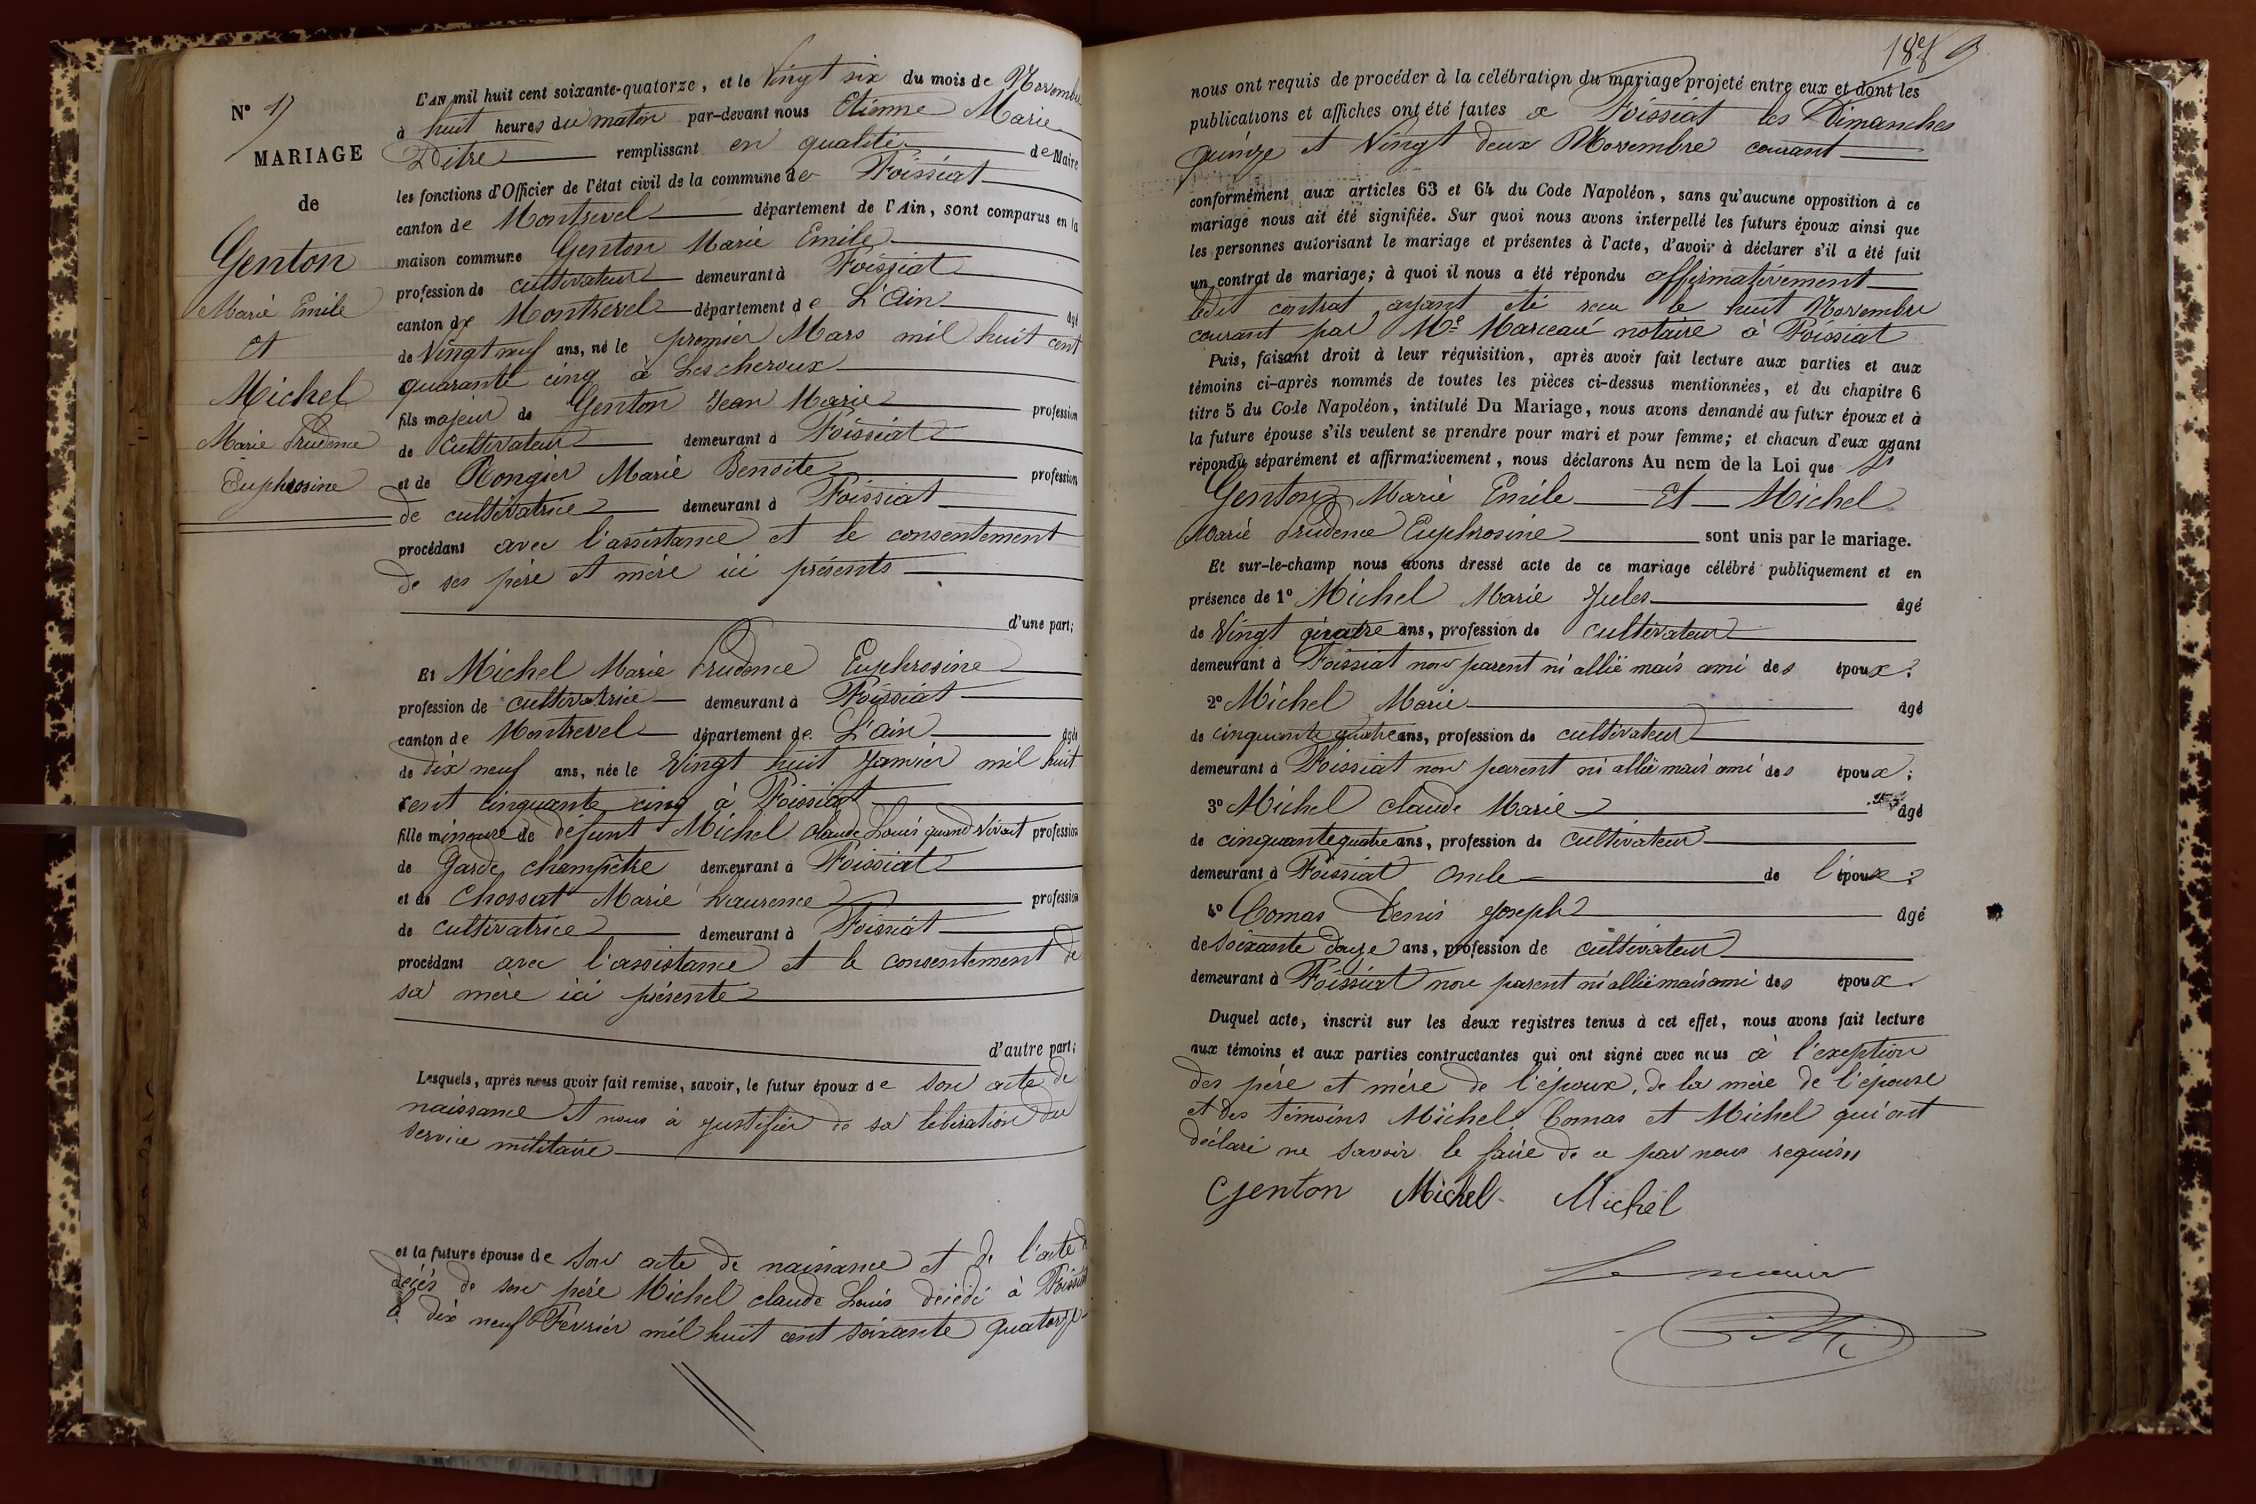 N° 17
MARIAGE
de
Genton
Marie Emile
et
Michel
Marie Prudence
Euphrosine
L'AN mil huit cent soixante-quatorze, et le Vingt six du mois de Novembre
à huit heures du matin par-devant nous Etienne Marie
Ditre remplissant en qualité de Maire
les fonctions d'Officier de l'état civil de la commune de Foissiat
canton de Montrevel département de l'Ain, sont comparus en la
maison commune Genton Marie Emile
profession de cultivateur demeurant à Foissiat
canton de Montrevel département de L'Ain âgé
de Vingt neuf ans, né le premier Mars mil huit cent
quarante cinq à Lescheroux
fils majeur de Genton Jean Marie profession
de Cultivateur demeurant à Foissiat
et de Rongier Marie Benoite profession
de cultivatrice demeurant à Foissiat
procédant avec l'assistance et le consentement
de ses père et mère ici présents
d'une part;
Et Michel Marie Prudence Euphrosine
profession de cultivatrice demeurant à Foissiat
canton de Montrevel département de L'ain âgée
de dix neuf ans, née le Vingt huit Janvier mil huit
cent cinquante cinq à Foissiat
fille mineure de défunt Michel Claude Louis quand vivait profession
de Garde champêtre demeurant à Foissiat
et de Chossat Marie Laurence profession
de cultivatrice demeurant à Foissiat
procédant avec l'assistance et le consentement de
sa mère ici présente
d'autre part;
Lesquels, après nous avoir fait remise, savoir, le futur époux de son acte de
naissance et nous à justifier de sa libération du
service militaire
et la future épouse de son acte de naissance et de l'acte de
décés de son père Michel claude Louis décédé à Foissiat
le dix neuf Février mil huit cent soixante quatorze
nous ont requis de procéder à la célébration du mariage projeté entre eux et dont les
publications et affiches ont été faites à Foissiat les Dimanches
quinze et Vingt deux Novembre courant
conformément aux articles 63 et 64 du Code Napoléon, sans qu'aucune opposition à ce
mariage nous ait été signifiée. Sur quoi nous avons interpellé les futurs époux ainsi que
les personnes autorisant le mariage et présentes à l'acte, d'avoir à déclarer s'il a été fait
un contrat de mariage; à quoi il nous a été répondu affirmativement
ledit contrat ayant été reçu le huit Novembre
courant par Me Marceau notaire à Foissiat
Puis, faisant droit à leur réquisition, après avoir fait lecture aux parties et aux
témoins ci-après nommés de toutes les pièces ci-dessus mentionnées, et du chapitre 6
titre 5 du Code Napoléon, intitulé Du Mariage, nous avons demandé au futur époux et à
la future épouse s'ils veulent se prendre pour mari et pour femme; et chacun d'eux ayant
répondu séparément et affirmativement, nous déclarons Au nom de la Loi que
Genton Marie Emile Et Michel
Marie Prudence Euphrosine sont unis par le mariage.
Et sur-le-champ nous avons dressé acte de ce mariage célébré publiquement et en
présence de 1° Michel Marie Jules âgé
de Vingt quatre ans, profession de cultivateur
demeurant à Foissiat non parent ni allié mais ami des époux;
2° Michel Marie âgé
de cinquante quatre ans, profession de cultivateur
demeurant à Foissiat non parent ni allié mais ami des époux;
3° Michel claude Marie âgé
de cinquante quatre ans, profession de cultivateur
demeurant à Foissiat oncle de l'épouse;
4° Comas Denis Joseph âgé
de soixante douze ans, profession de cultivateur
demeurant à Foissiat non parent ni allié mais ami des époux.
Duquel acte, inscrit sur les deux registres tenus à cet effet, nous avons fait lecture
aux témoins et aux parties contractantes qui ont signé avec nous à l'exeption
des père et mère de l'époux, de la mère de l'épouse
et des témoins Michel, Comas et Michel qui ont
déclaré ne savoir le faire de ce par nous requis
Genton Michel Michel
Le maire